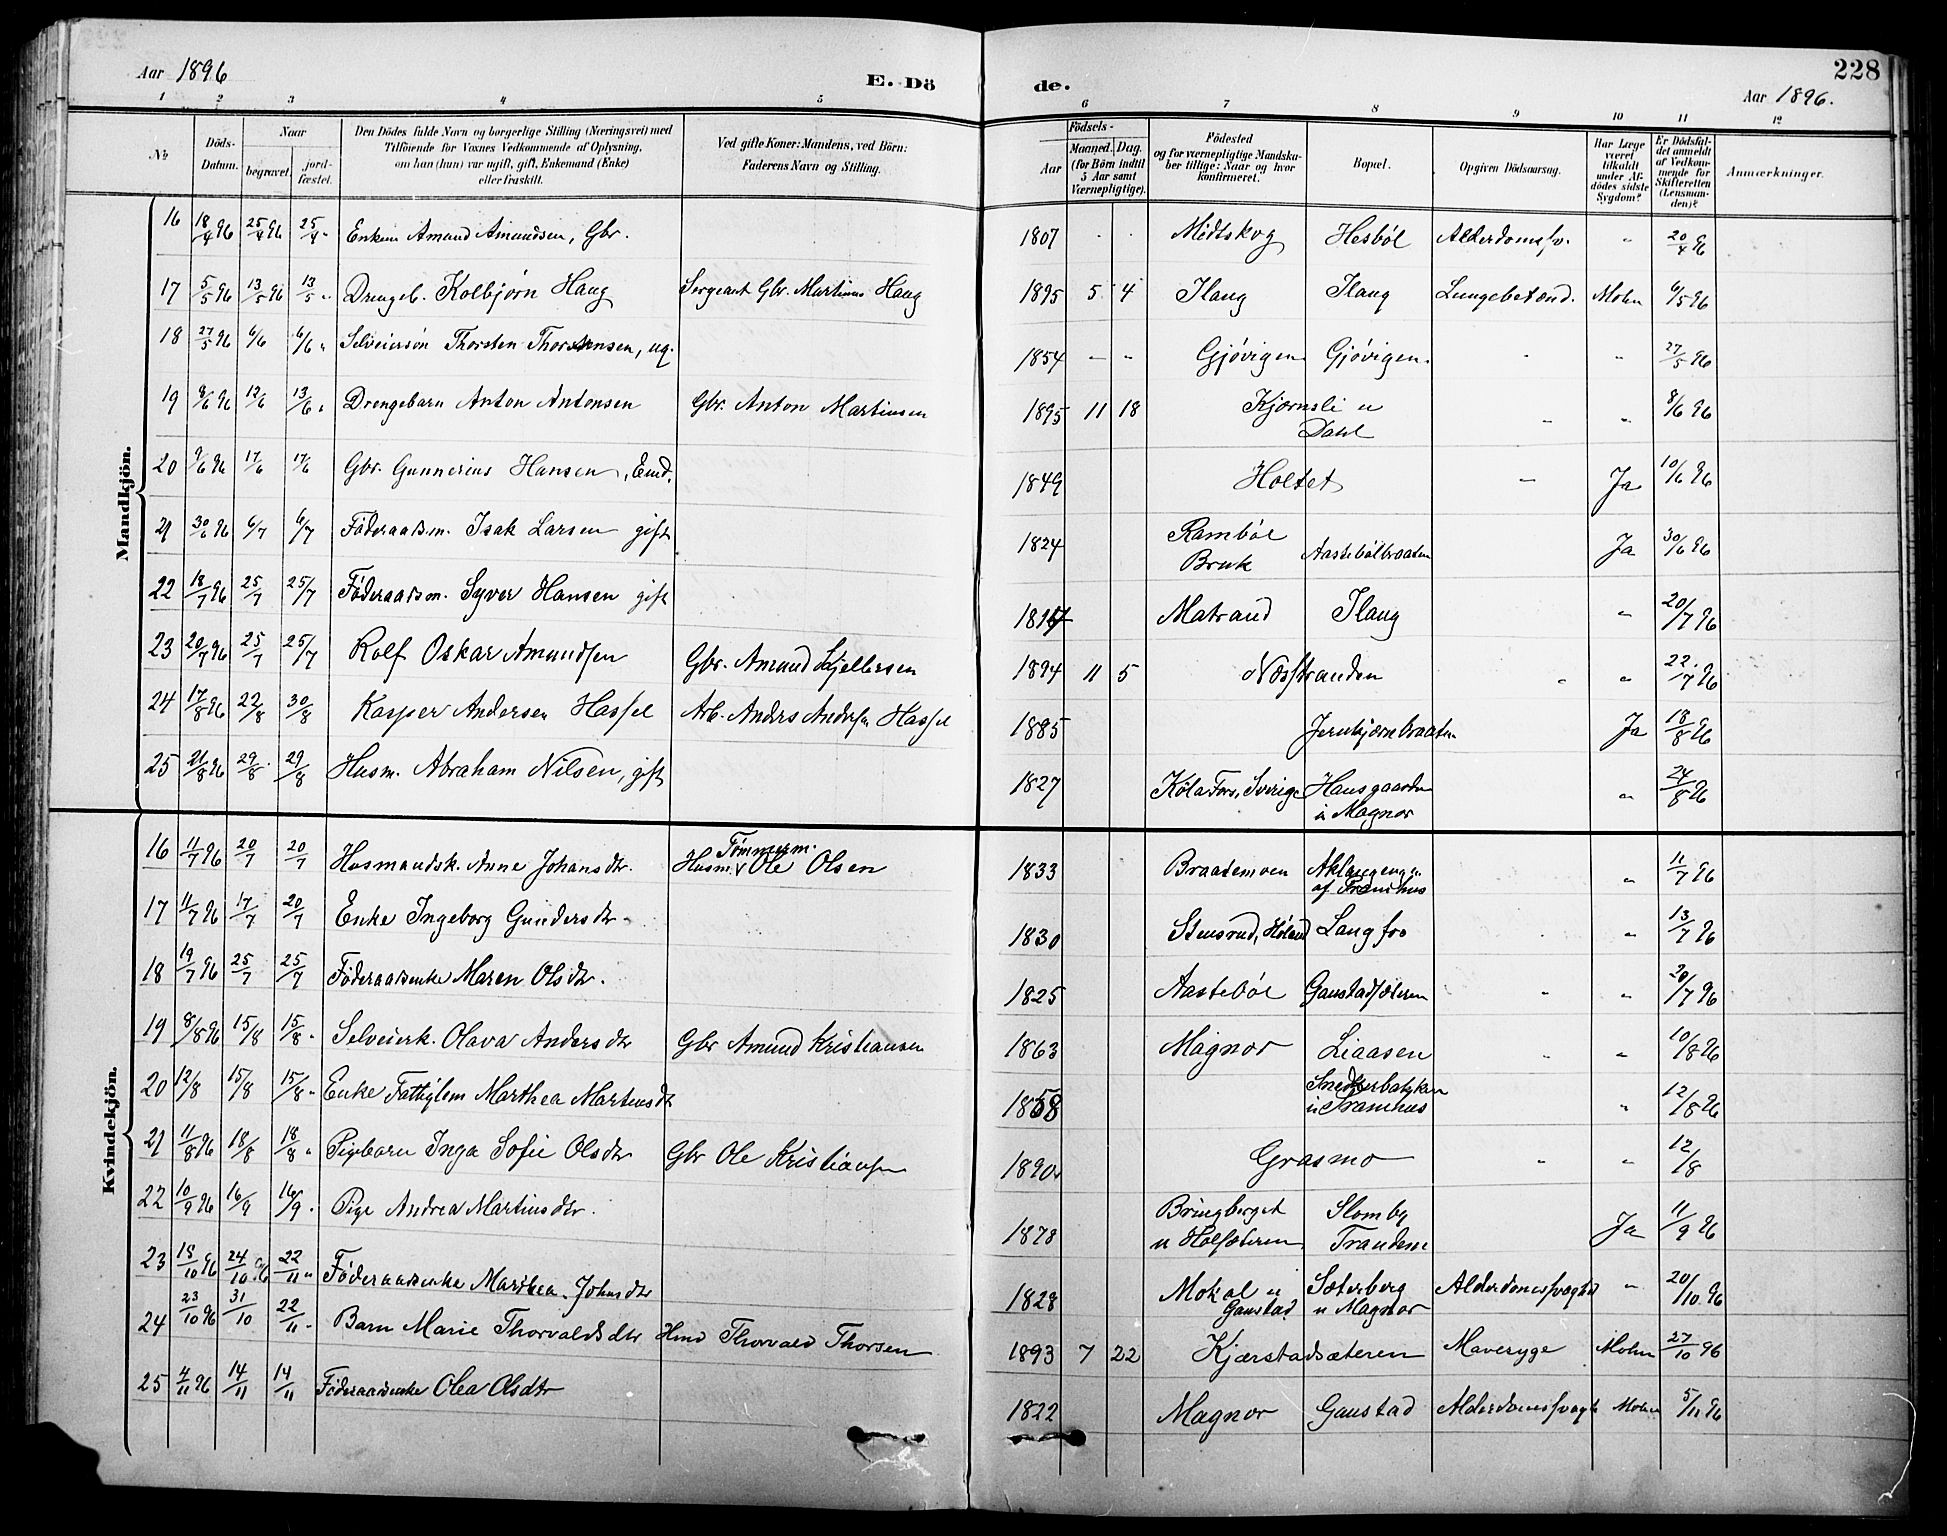 Aar 1896 E. Dö de. 228
Aar 1896.
1 2 3 4 5 6 7 8 9 10 11 12
№
Döds-Datum.
Naar
begravet.
jord-fæstet.
Den Dödes fulde Navn og borgerlige Stilling (Næringsvei) med
Tilföiende for Voxnes Vedkommende af Oplysning,
om han (hun) var ugift, gift, Enkemand (Enke)
eller fraskilt.
Ved gifte Koner: Mandens, ved Börn:
Faderens Navn og Stilling.
Födsels-
Aar
Maaned. Dag.
(for Börn indtil
5 Aar samt
Værnepligtige).
Födested
og for værnepligtige Mandska-
ber tillige: Naar og hvor
konfirmeret.
Bopæl.
Opgiven Dödsaarsag.
Har Læge
været
tilkaldt
under Af-
dödes sidste
Sygdom?
Er Dödsfal-
det anmeldt
af Vedkom-
mende for
Skifteretten
(Lensman-
den)?
Anmærkninger.
Mandkjön.
16 18/4 96 25/4 96 25/4 " Enkem Amund Amundsen, Gbr. 1807 Midtskog Hesböl Alderdomssv. " 20/4 96
17 5/5 96 13/5 96 13/5 " Drengeb. Kolbjörn Haug Sergeant Gbr. Martinus Haug 1895 5 4 Ilaug Ilaug Lungebetænd. Mohn 6/5 96
18 27/5 96 6/6 6/6 " Selveiersön Thorsten Thorstensen, ug. 1854 – " Gjövigen Gjövigen. " " 27/5 96
19 8/6 96 12/6 13/6 " Drengebarn Anton Antonsen Gbr. Anton Martinsen 1895 11 18 Kjernsli u
Dahl " " 8/6 96
20 9/6 96 17/6 17/6 Gbr. Gunnerius Hansen, Emd. 1849 Holtet – Ja 10/6 96
21 30/6 96 6/7 6/7 Föderaadsm. Isak Larsen gift 1824 Ramböl
Bruk Aastebölbraaten Ja 30/6 96
22 18/7 96 25/7 25/7 Föderaadsm. Syver Hansen gift Matrand Ilaug " 20/7 96
23 20/7 96 25/7 25/7 Rolf Oskar Amundsen Gbr. Amund Kjellersen 1894 11 5 Næsstranden " " 22/7 96
24 17/8 96 22/8 30/8 Kasper Andersen Hassel Arb. Anders Andersen Hassel 1885 Jernkjærnbraaten Ja 18/8 96
25 21/8 96 29/8 29/8 Husm. Abraham Nilsen, gift 1827 Köla Fors, Sverige Hansgaarden
u Magnor " 24/8 96
Kvindekjön.
16 11/7 96 20/7 20/7 Husmandsk. Anne Johansdtr. Husm. v Tömmerm. Ole Olsen 1833 Braatemoen Aklangen u
af Framhus " 11/7 96
17 11/7 96 17/7 20/7 Enke Ingeborg Gundersdtr. 1830 Stensrud, Höland Langfos " 13/7 96
18 19/7 96 25/7 25/7 Föderaadsenke Maren Olsdtr. 1825 Aasteböl Gaustadsæteren " " 20/7 96
19 8/8 96 15/8 15/8 " Selveierk. Olava Andersdtr Gbr Amund Kristiansen 1863 Magnor Liaasen " " 10/8 96
20 12/8 15/8 15/8 " Enke Fattiglem Marthea Martinsdtr 1858 u Framhus " 12/8 96
21 11/8 96 18/8 18/8 " Pigebarn Inga Sofie Olsdtr Gbr Ole Kristiansen 1890 Grasmo " " 12/8
22 10/9 96 16/9 16/9 " Pige Andrea Martinsdtr. 1878 Bringberget
u Holsæteren Slomby
Trandem Ja 11/9 96
23 15/10 96 24/10 96 22/11 " Föderaadsenke Marthea Johnsdtr 1828 Mokal u
Gaustad Sæterberg
u Magnor Alderdomssvaghed " 20/10 96
24 23/10 96 31/10 22/11 " Barn Marie Thorvaldsdtr Hmd Thorvald Thorsen 1893 7 22 Kjærstadsæteren Mavesyge Mohn 27/10 96
25 4/11 96 14/11 14/11 Föderaadsenke Olea Olsdtr 1822 Magnor Gaustad Alderdomssvagh Mohn 5/11 96